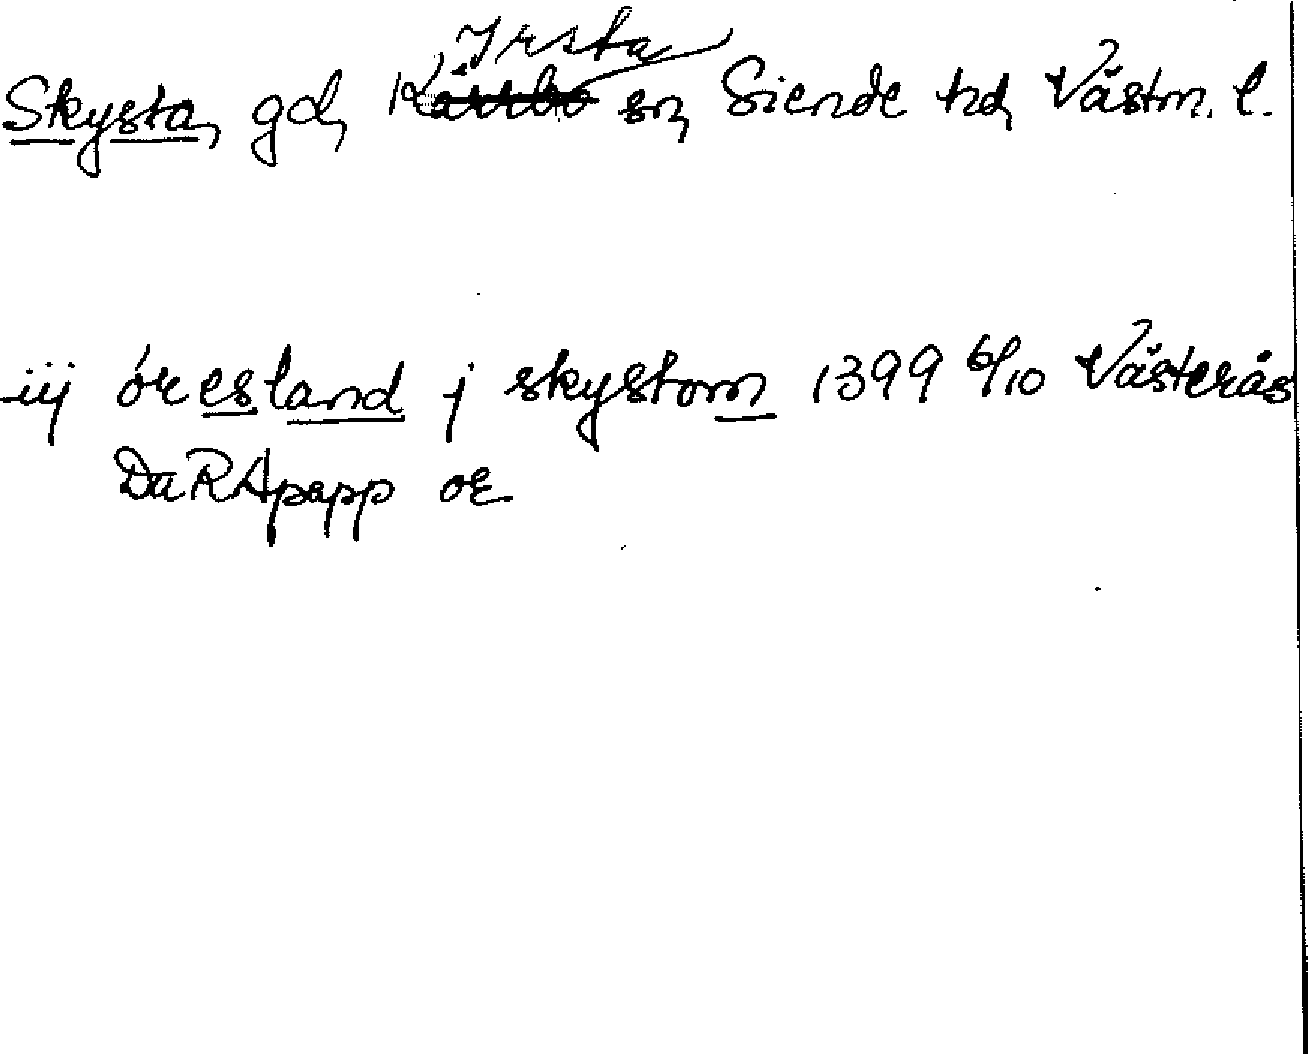 Irsta
Skysta, gd, Kärrbo sn, Siende hd, Västm. l.
iij öresland j skystom 1399 6/10 Västerås
Da RA papp or